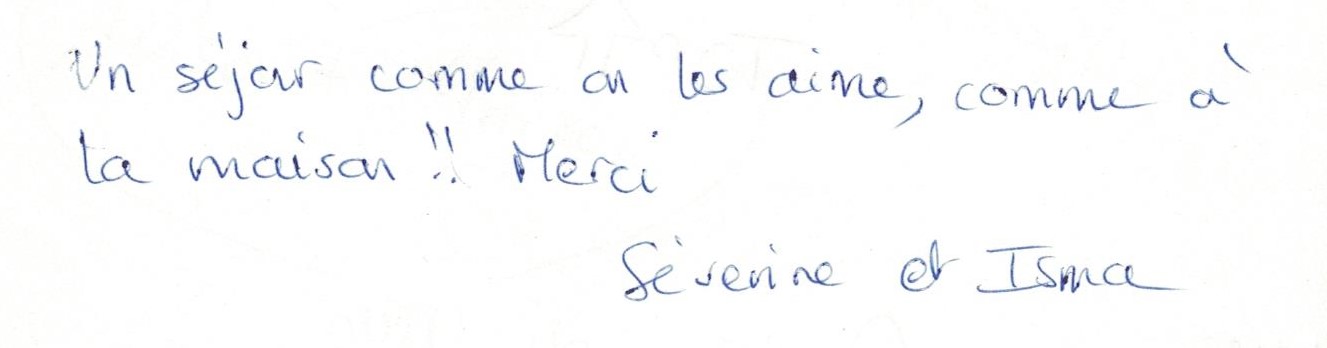 Un séjour comme on les aime, comme à
la maison !! Merci
Séverine et Isma